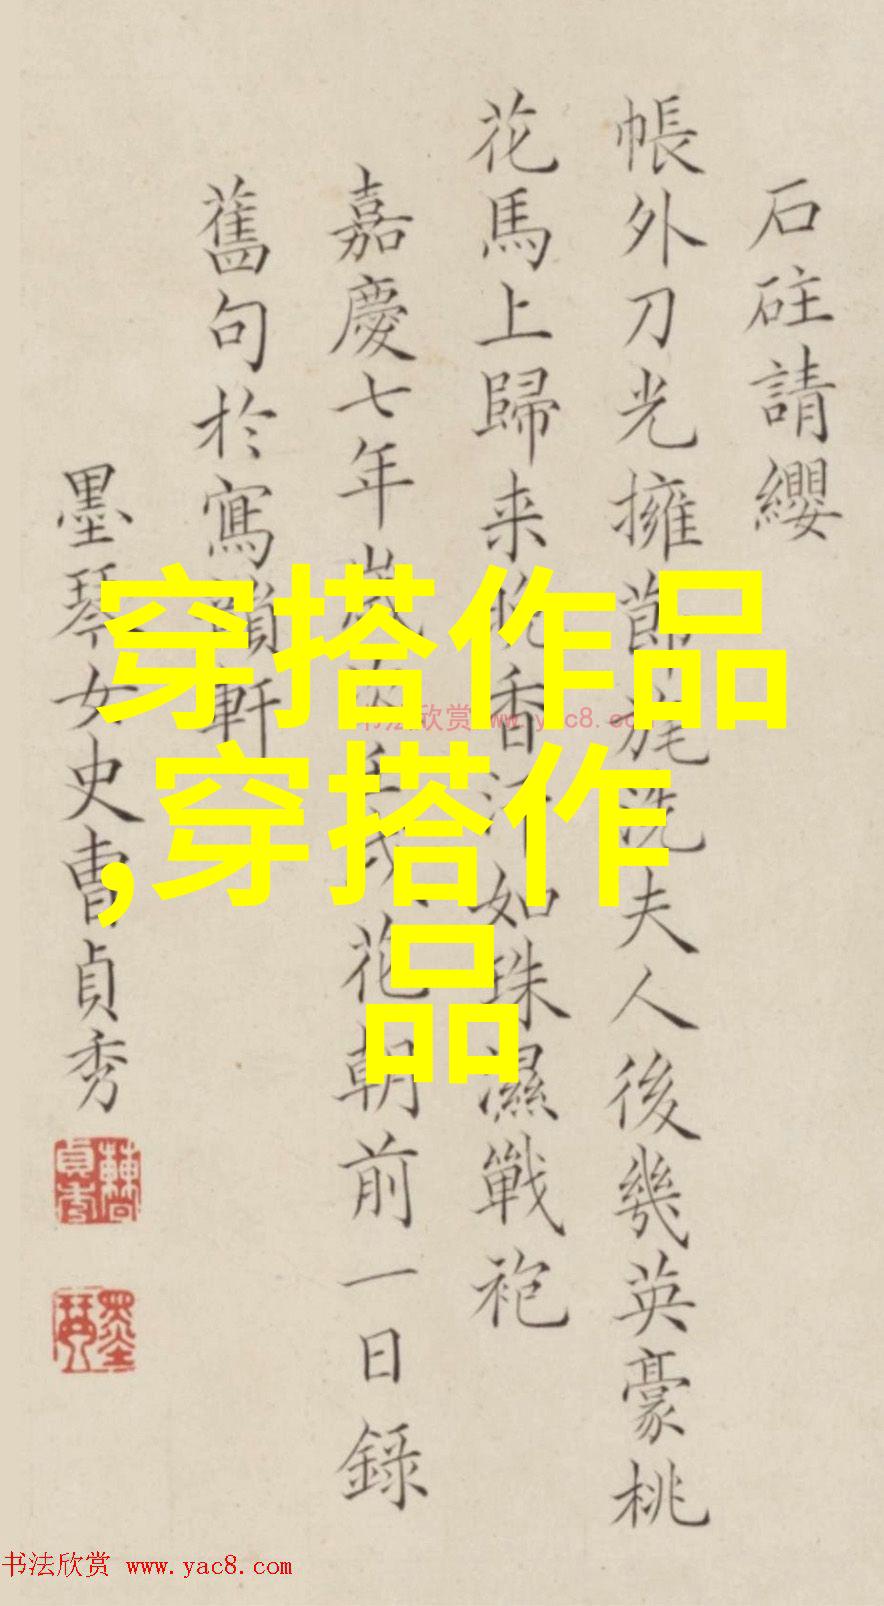 石砫請纓
帳外刀光擁節旄洗夫人後幾英豪桃
花馬上歸来晚香汗如珠濕戰袍
嘉慶七年歲次壬戌花朝前一日錄
舊句於寫韻軒
墨琴女史曹貞秀
穿搭作品
,穿搭作
品
书法欣赏 www.yac8.com
书法欣赏 www.yac8.com